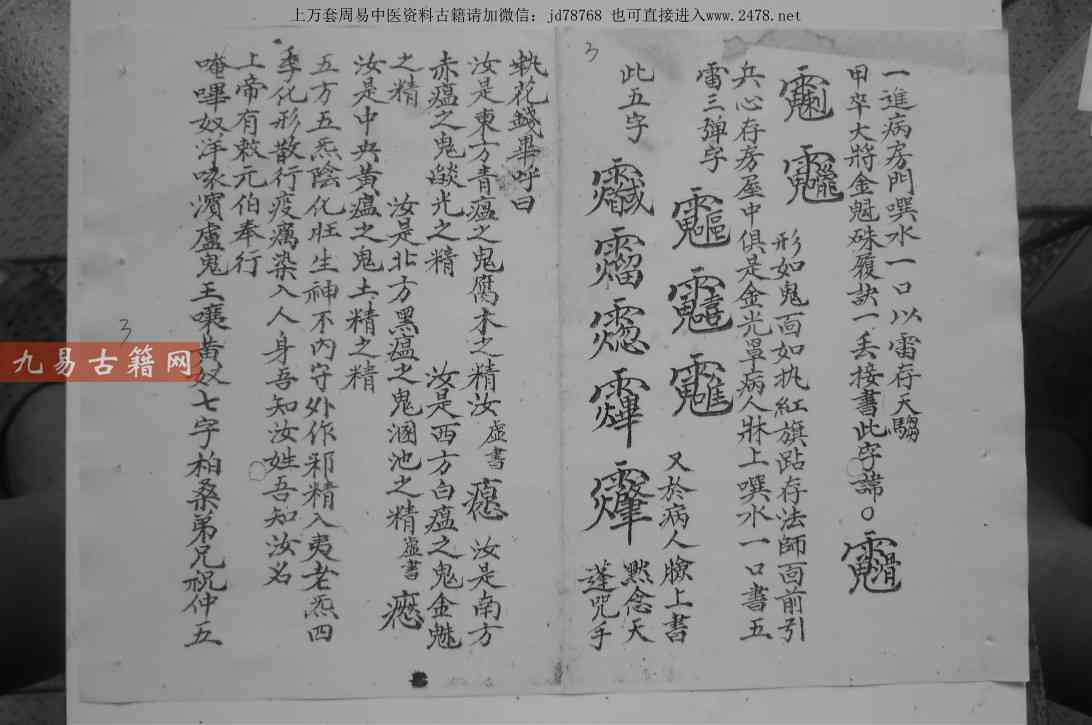 上万套周易中医资料古籍请加微信：jd78768 也可直接进入www.2478.net
一進病房門噀水一口以雷存天騶
甲卒大將金魁硃履訣一丢接書此字諱○
形如鬼面如执紅旗跕存法師面前引
兵心存房屋中俱是金光罩病人牀上噀水一口書五
雷三弹字
又於病人臉上書
此五字
默念天
蓬咒手
3
执花錢畢呼曰
汝是東方青瘟之鬼腐木之精汝虛書
汝是南方
赤瘟之鬼燄光之精
汝是西方白瘟之鬼金魅
之精
汝是北方黑瘟之鬼溷池之精虛書
汝是中央黃瘟之鬼土精之精
五方五炁陰化旺生神不内守外作邪精入夷老炁四
季化形散行疫癘染入人身吾知汝姓吾知汝名
上帝有敕元伯奉行
唵嗶奴洋哚濱盧鬼王
黃奴七字柏桑弟兄祝仲五
3
九易古籍网